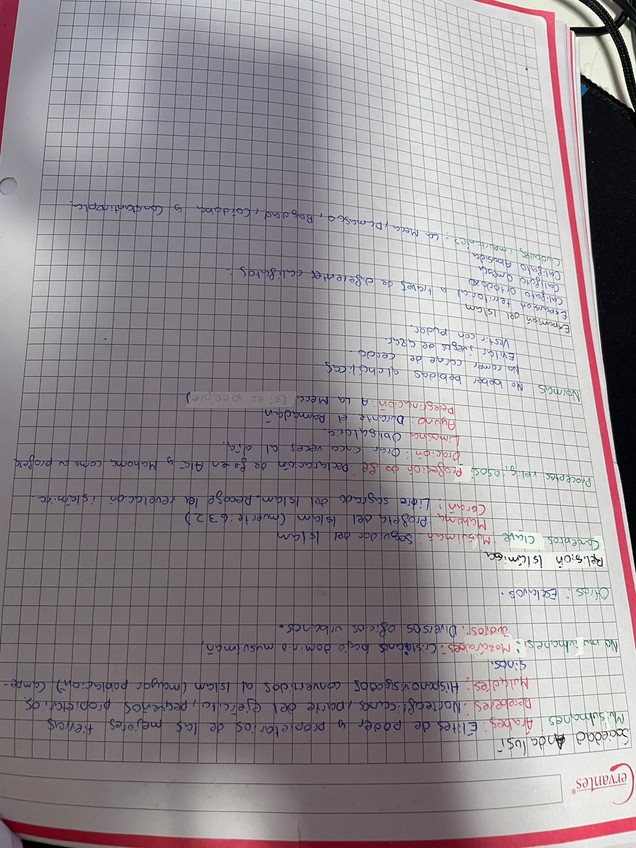 Cervantes®
Sociedad Andalusí
Musulmanes
Árabes: Élites de poder y propietarios de las mejores tierras
Bereberes: Norteafricanos, parte del ejército, pequeños propietarios
Muladíes: Hispanovisigodos convertidos al Islam (mayor población) Campe-
sinos.
No musulmanes: Mozárabes: Cristianos bajo dominio musulmán,
Judíos: Diversos oficios urbanos.
Otros: Esclavos.
Religión Islámica
Conceptos Clave Musulmán: Seguidor del Islam
Mahoma: Profeta del Islam (muerte: 632)
Corán: Libro sagrado del Islam. Recoge la revelación islámica
Preceptos religiosos: Profesión de fe: Declaración de fe en Alá y Mahoma como su profeta
Oración: Orar cinco veces al día.
Limosna Obligatoria.
Ayuno: Durante el Ramadán
Peregrinación: A La Meca (si es posible)
Normas No beber bebidas alchólicas
No comer carne de cerdo
Evitar juegos de azar
Vestir con pudor
Expansión del Islam
Expansión territorial a través de diferentes califatos:
Califato Ortodoxo
Califato Omeya
Califato Abasida
Ciudades importantes: La Meca, Damasco, Bagdad, Córdoba y Constantinopla.